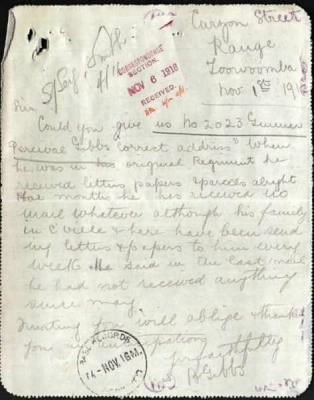 Caryon Street
Range
Toowoomba
Nov 1st 191
CORRESPONDENCE
SECTION.
NOV 6 1916
RECEIVED.
Sir
Could you give us No 2023 Gunner
Percival Gibbs correct address" When
he was in his original Regiment he
received letters papers & parcels alright
months he has received no
mail whatever although his family
in & here have been send
ing letters & papers to him every
week. He said in the last mail
he had not received anything
since May.
Trusting you will oblige & thank
you in anticipation
yours faithfully
Gibbs
BASE RECORDS
14 NOV. 16